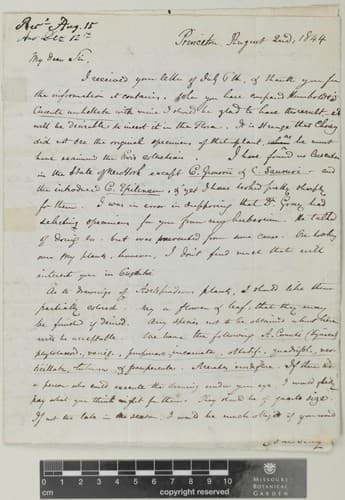 Rec.d Aug. 15
Ans Dec 12th
Princeton August 2nd, 1844
My dear Sir,
I received your letter of July 6th, & thank you for
the information it contains. When you have compared Humboldt's
Cuscuta umbellata with mine I should be glad to have the result - it
will be desirable to insert it in the Flora. It is strange that Choisy
did not see the original specimens of that plant, when he must
have examined the Paris collections. I have found no Cuscuta
in the State of New York except C. Gronovii & C. - and
the introduced C. Epilinum, & yet I have looked pretty sharply
for them. I was in error in supposing that Dr. Gray had
selected specimens for you from my herbarium. He talked
of doing so - but was prevented from some cause. On looking
over my plants, however, I don't find much that will
interest you in Cuscuta.
As to drawings of Asclepiadeous plants, I should like them
partially colored - say a flower & leaf, that they may
be finished if desired. Any species not to be obtained about here
will be acceptable. We have the following A. Cornuti (Syriaca)
phytolaccoides, variegata, purpurascens, incarnata, obtusifolia, quadrifolia, ver-
ticillata, tuberosa & paupercula. Acerates viridiflora. If there is
a person who could execute the drawings under your eye, I would gladly
pay what you think right for them. They should be of quarto size.
If not too late in the season, I would be much obliged if you would
MISSOURI
BOTANICAL
GARDEN
cm
0 1 2 3 4 5 6 7 8 9 10